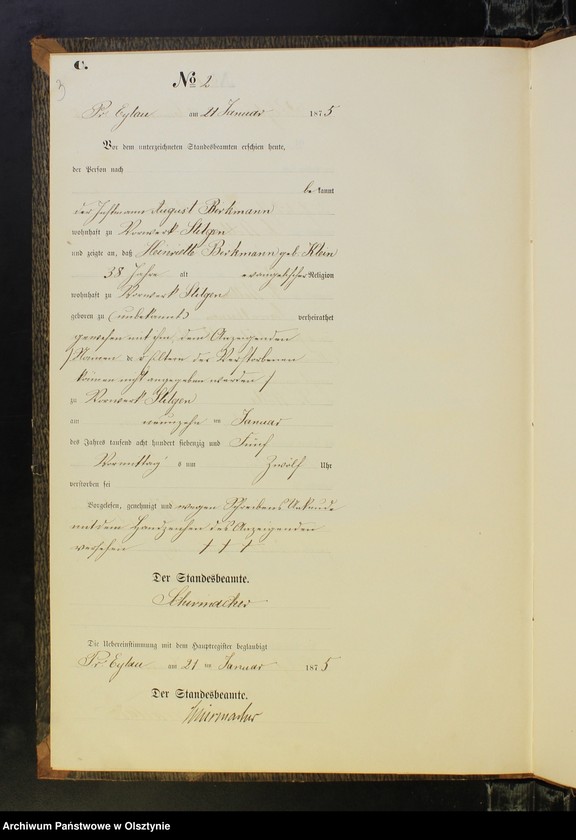 C.
3
No 2
Pr. Eylau am 21 Januar 1875
Vor dem unterzeichneten Standesbeamten erschien heute,
der Person nach
bekannt
der Instmann August Berkmann
wohnhaft zu Vorwerk Stilgen
und zeigte an, daß Heinriette Berkmann geb. Klein
38 Jahre alt evangelischer Religion
wohnhaft zu Vorwerk Stilgen
geboren zu (unbekannt) verheirathet
gewesen mit ihm, dem Anzeigenden
(Namen der Eltern der Verstorbenen
können nicht angegeben werden)
zu Vorwerk Stilgen
am neunzehn ten Januar
des Jahres tausend acht hundert siebenzig und Fünf
Vormittags um Zwölf Uhr
verstorben sei
Vorgelesen, genehmigt und wegen Schreibens Unkunde
mit dem Handzeichen des Anzeigenden
versehen + + +
Der Standesbeamte.
Die Uebereinstimmung mit dem Hauptregister beglaubigt
Pr. Eylau am 21 ten Januar 1875
Der Standesbeamte.
Archiwum Państwowe w Olsztynie